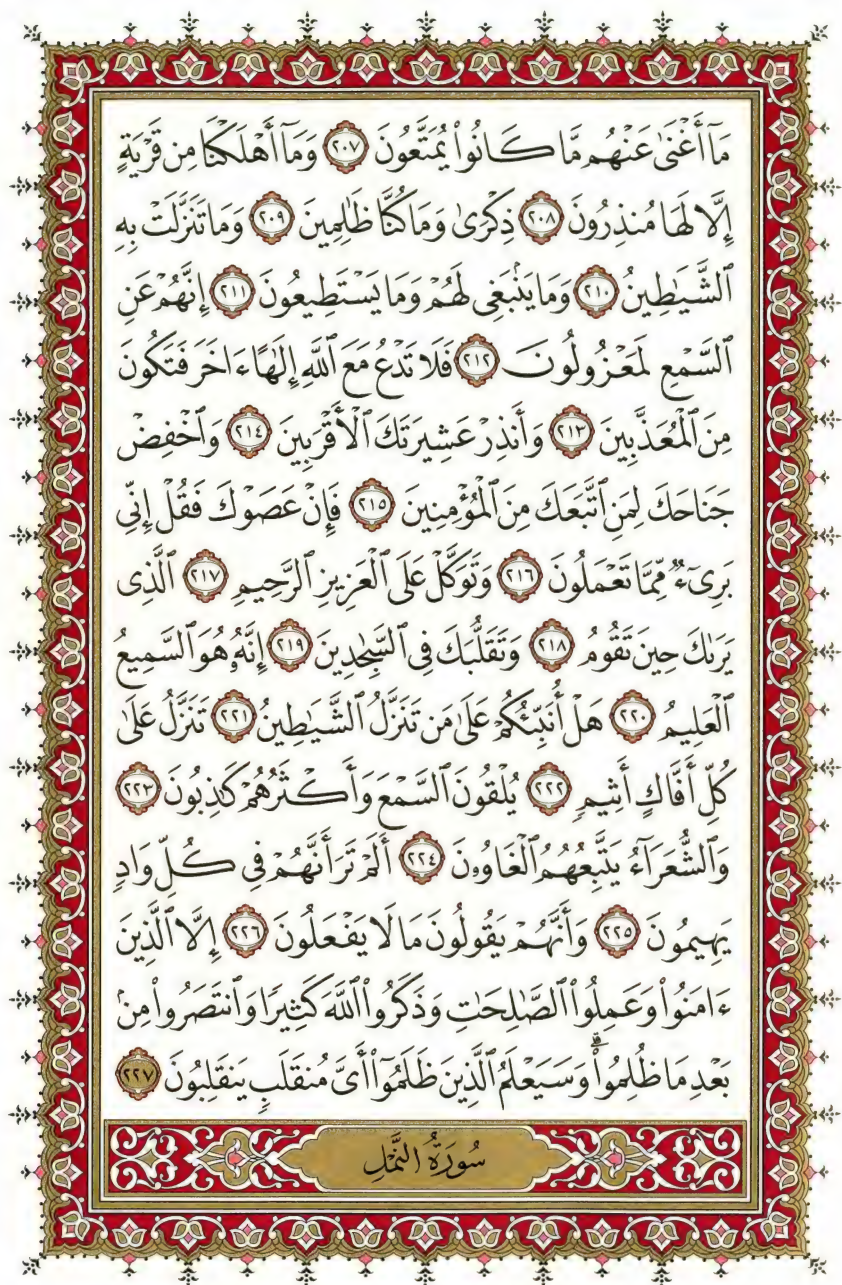 مَآ أَغْنَىٰ عَنْهُم مَّا كَانُوا۟ يُمَتَّعُونَ ٢٠٧ وَمَآ أَهْلَكْنَا مِن قَرْيَةٍ
إِلَّا لَهَا مُنذِرُونَ ٢٠٨ ذِكْرَىٰ وَمَا كُنَّا ظَٰلِمِينَ ٢٠٩ وَمَا تَنَزَّلَتْ بِهِ
ٱلشَّيَٰطِينُ ٢١٠ وَمَا يَنۢبَغِى لَهُمْ وَمَا يَسْتَطِيعُونَ ٢١١ إِنَّهُمْ عَنِ
ٱلسَّمْعِ لَمَعْزُولُونَ ٢١٢ فَلَا تَدْعُ مَعَ ٱللَّهِ إِلَٰهًا ءَاخَرَ فَتَكُونَ
مِنَ ٱلْمُعَذَّبِينَ ٢١٣ وَأَنذِرْ عَشِيرَتَكَ ٱلْأَقْرَبِينَ ٢١٤ وَٱخْفِضْ
جَنَاحَكَ لِمَنِ ٱتَّبَعَكَ مِنَ ٱلْمُؤْمِنِينَ ٢١٥ فَإِنْ عَصَوْكَ فَقُلْ إِنِّى
بَرِىٓءٌ مِّمَّا تَعْمَلُونَ ٢١٦ وَتَوَكَّلْ عَلَى ٱلْعَزِيزِ ٱلرَّحِيمِ ٢١٧ ٱلَّذِى
يَرَىٰكَ حِينَ تَقُومُ ٢١٨ وَتَقَلُّبَكَ فِى ٱلسَّٰجِدِينَ ٢١٩ إِنَّهُۥ هُوَ ٱلسَّمِيعُ
ٱلْعَلِيمُ ٢٢٠ هَلْ أُنَبِّئُكُمْ عَلَىٰ مَن تَنَزَّلُ ٱلشَّيَٰطِينُ ٢٢١ تَنَزَّلُ عَلَىٰ
كُلِّ أَفَّاكٍ أَثِيمٍ ٢٢٢ يُلْقُونَ ٱلسَّمْعَ وَأَكْثَرُهُمْ كَٰذِبُونَ ٢٢٣
وَٱلشُّعَرَآءُ يَتَّبِعُهُمُ ٱلْغَاوُۥنَ ٢٢٤ أَلَمْ تَرَ أَنَّهُمْ فِى كُلِّ وَادٍ
يَهِيمُونَ ٢٢٥ وَأَنَّهُمْ يَقُولُونَ مَا لَا يَفْعَلُونَ ٢٢٦ إِلَّا ٱلَّذِينَ
ءَامَنُوا۟ وَعَمِلُوا۟ ٱلصَّٰلِحَٰتِ وَذَكَرُوا۟ ٱللَّهَ كَثِيرًا وَٱنتَصَرُوا۟ مِنۢ
بَعْدِ مَا ظُلِمُوا۟ ۗ وَسَيَعْلَمُ ٱلَّذِينَ ظَلَمُوٓا۟ أَىَّ مُنقَلَبٍ يَنقَلِبُونَ ٢٢٧
سُورَةُ النَّمْلِ